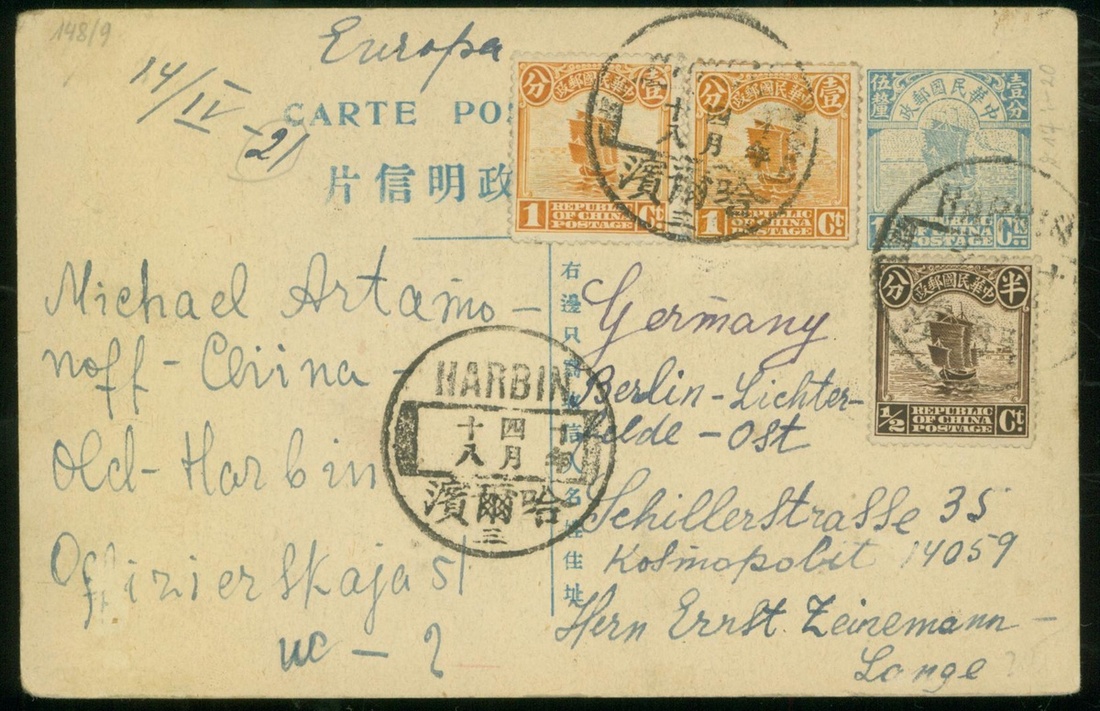 148/9
Europa
14/IV-21
CARTE POS
片信明政
分 壹
政郵國民華中
1 REPUBLIC OF CHINA POSTAGE Ct.
分 壹
政郵國民華中
1 REPUBLIC OF CHINA POSTAGE Ct.
伍釐 壹分
政郵國民華中
POSTAGE
分 半
政郵國民華中
1/2 REPUBLIC OF CHINA POSTAGE Ct.
十八 四月 十年
濱爾哈
三
Michael Artamo-
noff - China -
Old-Harbin
Offizierskaja 51
HARBIN
十八 四月 十年
濱爾哈
三
Germany
Berlin-Lichter-
felde-Ost
Schillerstrasse 35
Kosmopolit 14059
Hern Ernst Zeinemann-
Lange